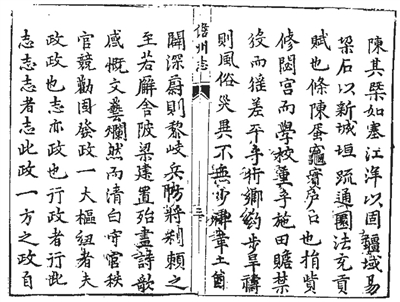 陳其槩如塞江洋以固疆域易
梁石以新城垣疏通圜法充貢
賦也條陳蛋竈實戶口也捐貲
修閟宮而學校事施田贍
役而猺差平鄉約步旱禱
則風俗災異不無少禆土茵
儋州志
闢深蔚則黎岐兵防將賴之
至若廨舍陂梁建置殆盡詩歌
感慨文藝爛然而清白守官秩
官競勸固發政一大樞紐者夫
政政也志亦政也行政者行此
志志志者志此政一方之政自